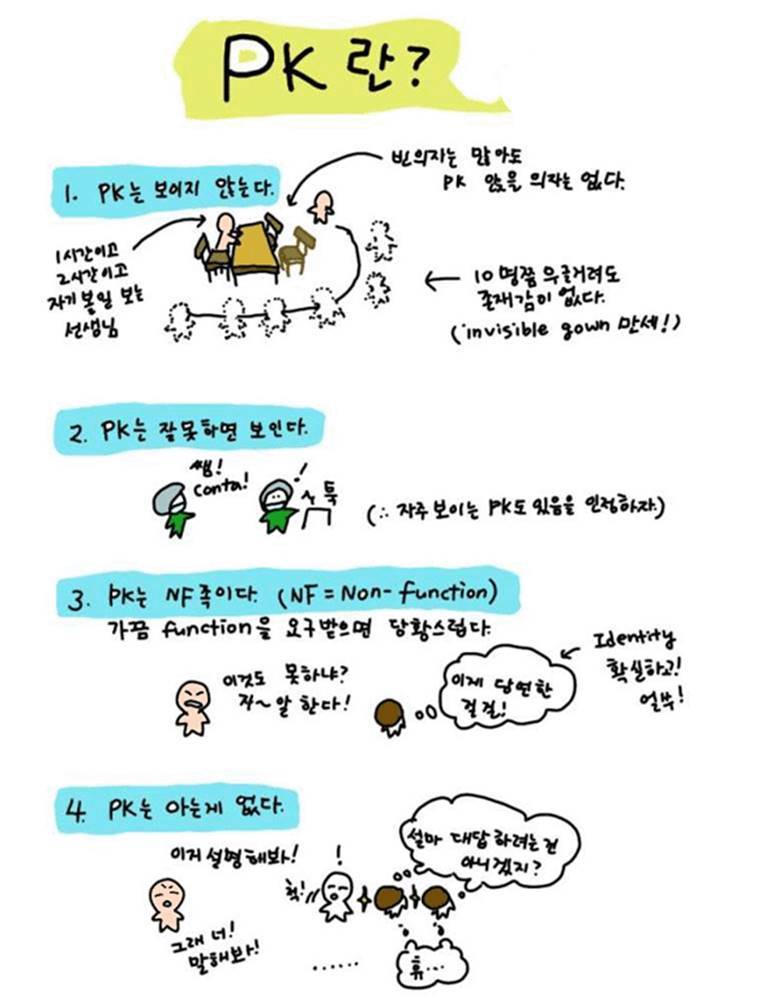 PK란?
1. PK는 보이지 않는다.
빈의자는 많아도
PK 앉을 의자는 없다.
1시간이고
2시간이고
자기 볼일 보는
선생님
10명쯤 우글거려도
존재감이 없다.
(invisible gown 만세!)
2. PK는 잘못하면 보인다.
쌤!
Conta!
!
툭
(∴ 자주 보이는 PK도 있음을 인정하자.)
3. PK는 NF족이다. (NF = Non-function)
가끔 function을 요구받으면 당황스럽다.
이것도 못하냐?
자~알 한다!
이게 당연한
걸걸!
Identity
확실하고!
얼쑤!
4. PK는 아는게 없다.
이거 설명해봐!
!
헉!
설마 대답하려는건
아니겠지?
그래 너!
말해봐!
......
휴...